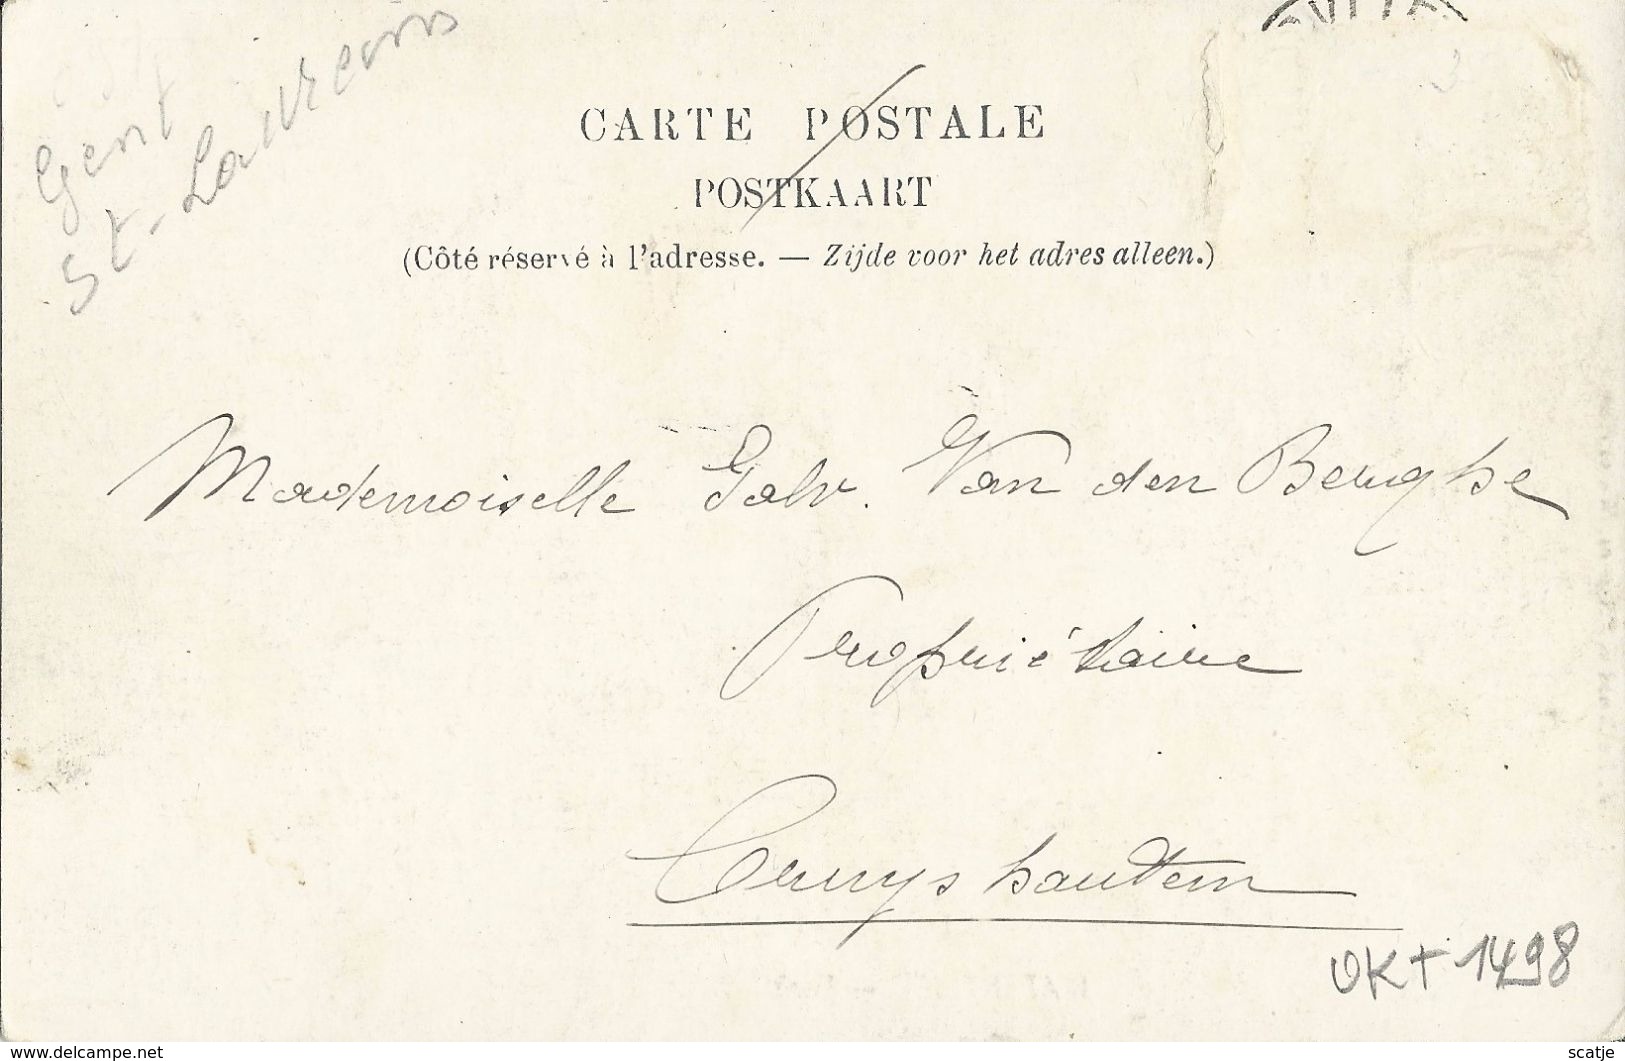 Gent
St-Laureins
CARTE POSTALE
POSTKAART
(Côté réservé à l'adresse. — Zijde voor het adres alleen.)
Mademoiselle Galv. Van den Berghe
Propriétaire
Cruyshautem
OKT 1498
www.delcampe.net
scatje